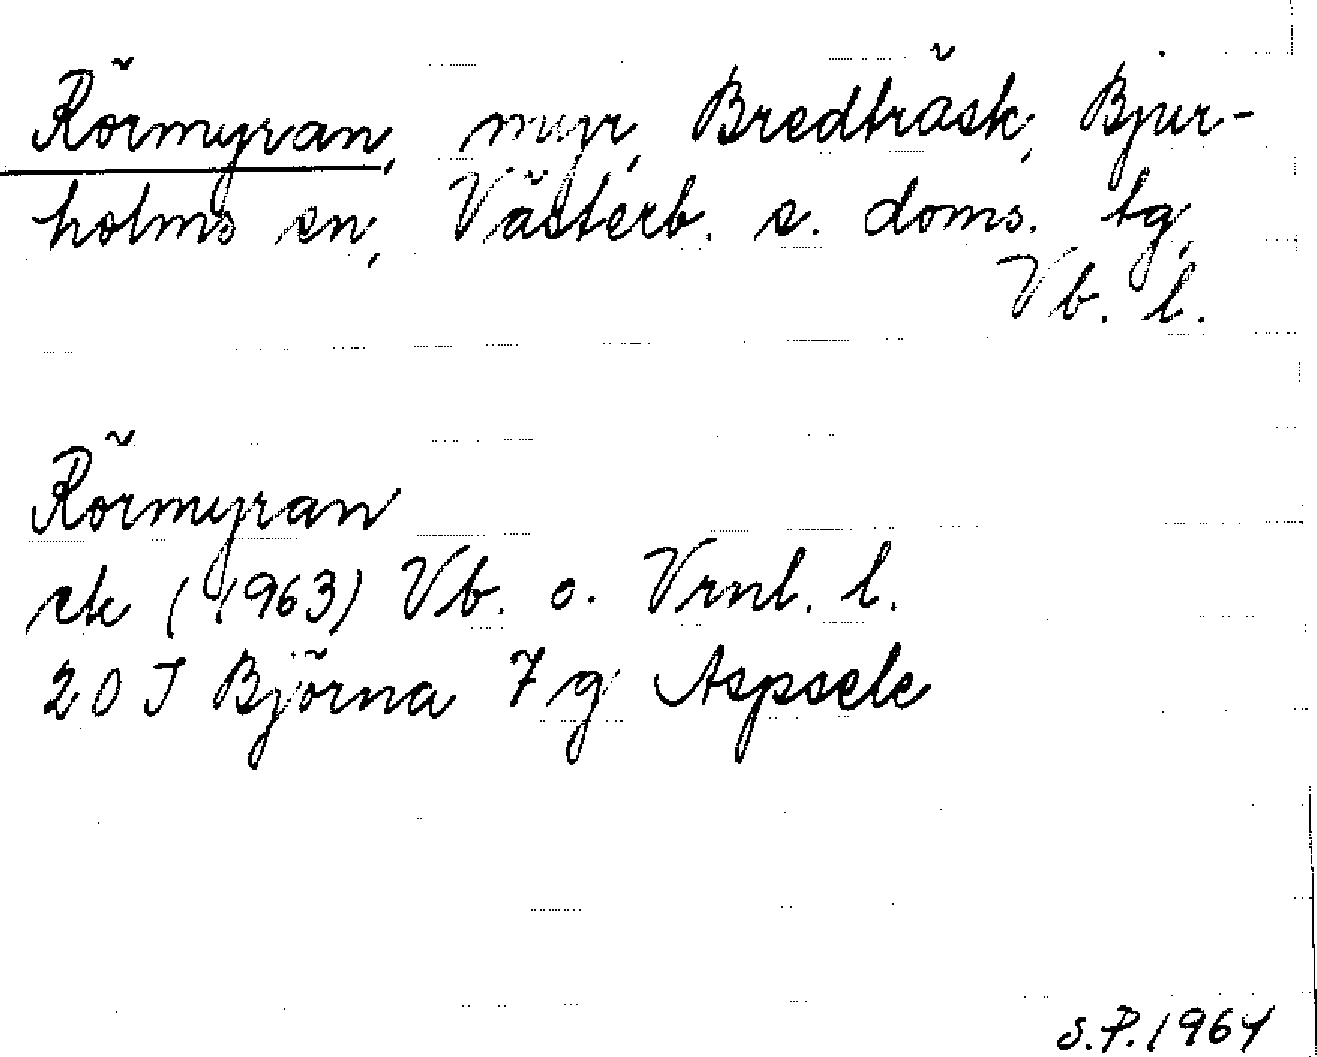 Rörmyran, myr, Bredträsk, Bjur-
holms sn, Västerb. s. doms. tg,
Vb. l.
Rörmyran
ek (1963) Vb. o. Vrnl. l.
20 J Björna 7 g Aspsele
S.P. 1964